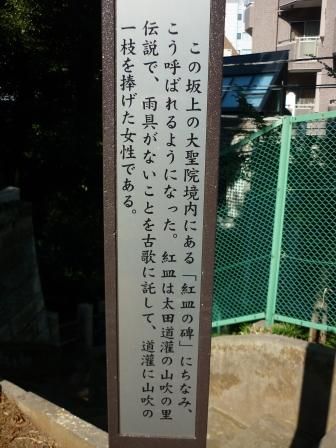 この坂上の大聖院境内にある「紅皿の碑」にちなみ、
こう呼ばれるようになった。紅皿は太田道灌の山吹の里
伝説で、雨具がないことを古歌に託して、道灌に山吹の
一枝を捧げた女性である。